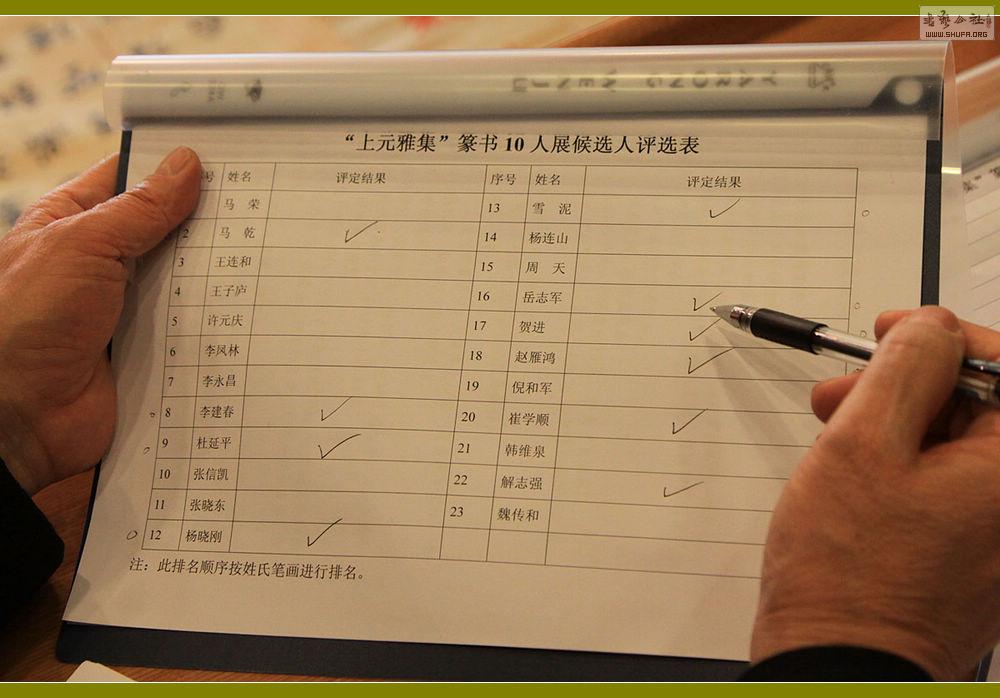 书艺公社
WWW.SHUFA.ORG
YARONG WENJU
“上元雅集”篆书10人展候选人评选表
号 姓名 评定结果 序号 姓名 评定结果
马 荣 13 雪 泥 ✓
2 马 乾 ✓ 14 杨连山
3 王连和 15 周 天
4 王子庐 16 岳志军 ✓
5 许元庆 17 贺进 ✓
6 李凤林 18 赵雁鸿 ✓
7 李永昌 19 倪和军
8 李建春 ✓ 20 崔学顺 ✓
9 杜延平 ✓ 21 韩维泉
10 张信凯 22 解志强 ✓
11 张晓东 23 魏传和
12 杨晓刚 ✓
注：此排名顺序按姓氏笔画进行排名。